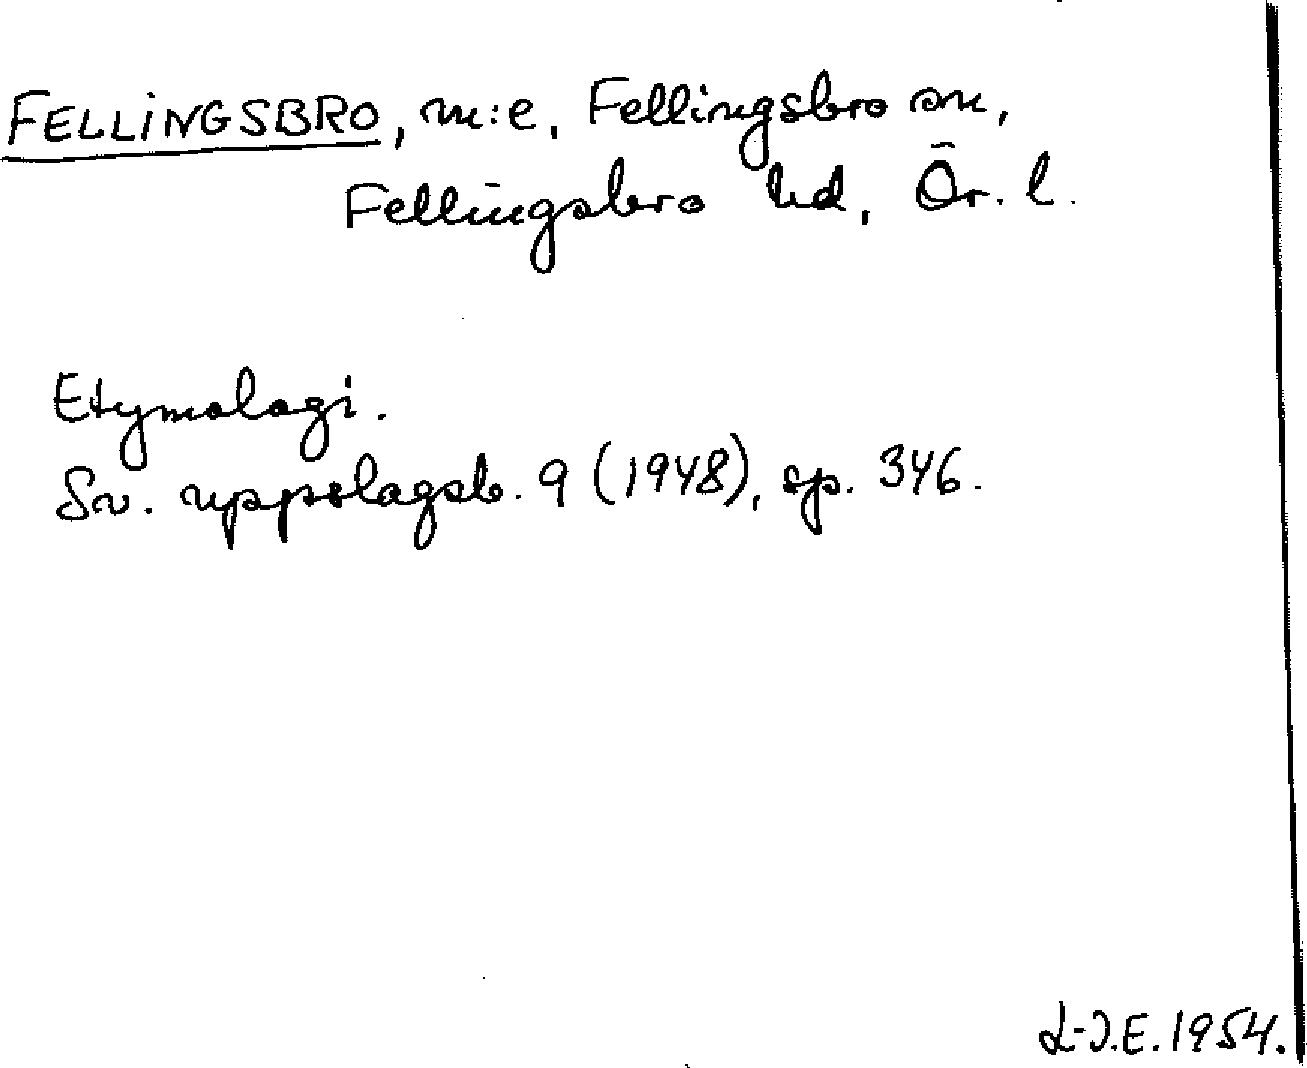 FELLINGSBRO, m:e, Fellingsbro sn,
Fellingsbro hd, Ör. l.
Etymologi.
Sv. uppslagsb. 9 (1948), sp. 346.
L-J.E. 1954.